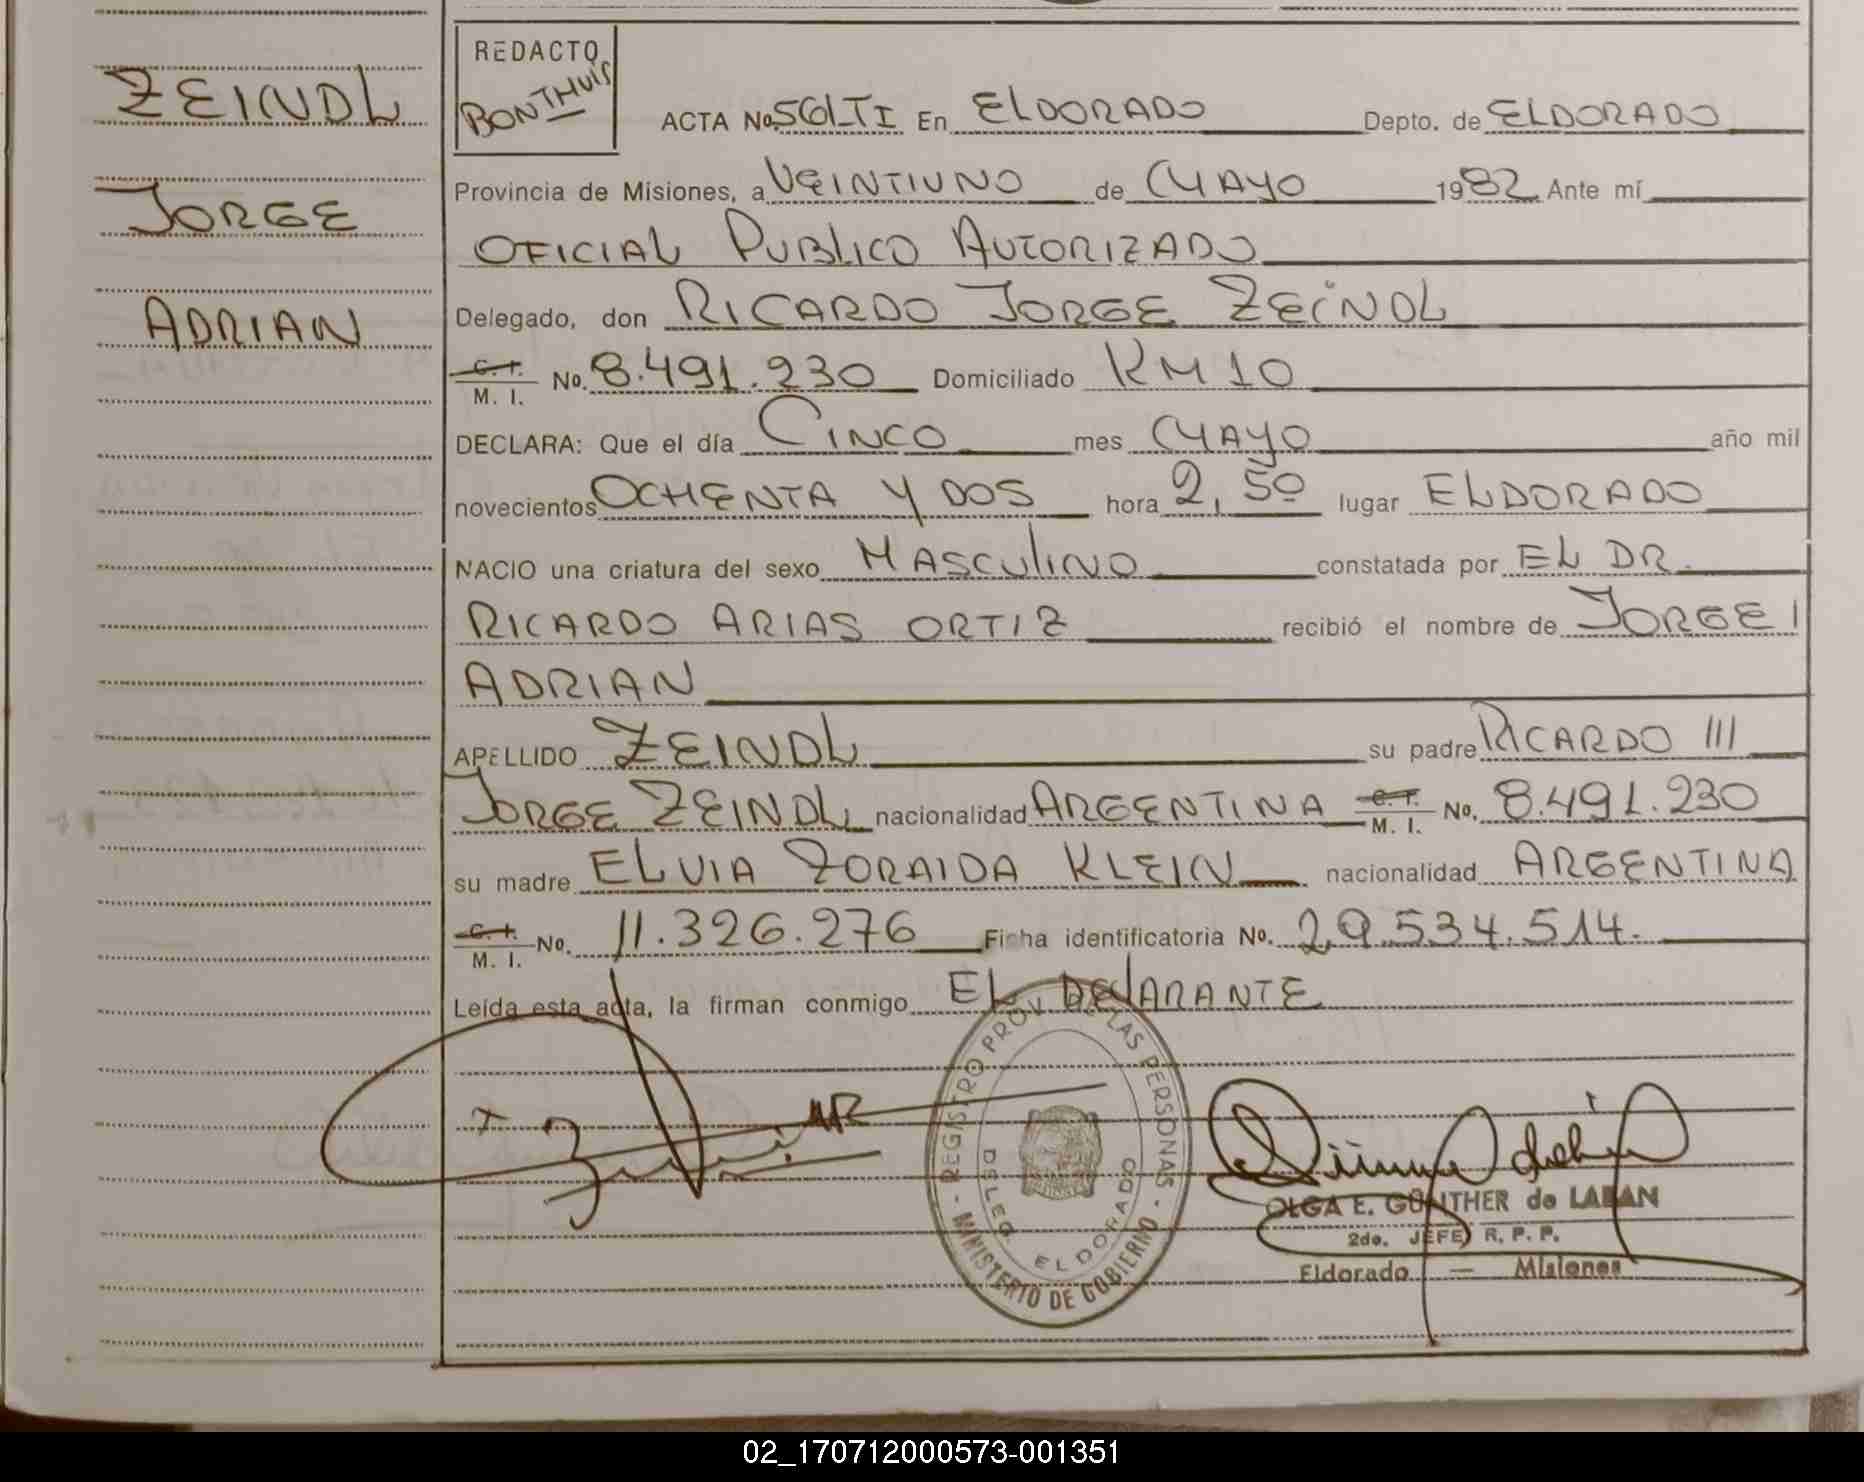 ZEINDL
JORGE
ADRIAN
REDACTO
BONTHUIS
ACTA No. 561-TI En ELDORADO Depto. de ELDORADO
Provincia de Misiones, a VEINTIUNO de MAYO 1982 Ante mí
OFICIAL PUBLICO AUTORIZADO
Delegado, don RICARDO JORGE ZEINDL
C. I.
M. I. No. 8.491.230 Domiciliado KM 10
DECLARA: Que el día CINCO mes MAYO año mil
novecientos OCHENTA Y DOS hora 2,50 lugar ELDORADO
NACIO una criatura del sexo MASCULINO constatada por EL DR.
RICARDO ARIAS ORTIZ recibió el nombre de JORGE
ADRIAN
APELLIDO ZEINDL su padre RICARDO
JORGE ZEINDL nacionalidad ARGENTINA C. I. M. I. No. 8.491.230
su madre ELVIA ZORAIDA KLEIN nacionalidad ARGENTINA
C. I.
M. I. No. 11.326.276 Ficha identificatoria No. 29.534.514.
Leída esta acta, la firman conmigo EL DECLARANTE
REGISTRO PROV. DE LAS PERSONAS
DELEG. ELDORADO
MINISTERIO DE GOBIERNO
OLGA E. GÜNTHER de LABAN
2do. JEFE R. P. P.
Eldorado — Misiones
02_170712000573-001351